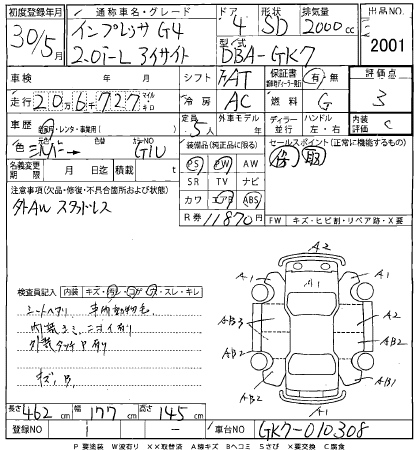 初度登録年月 通称車名・グレード ドア 形状 排気量 出品NO.
30/5月 インプレッサ G4 4 SD 2000cc 2001
2.0i-L アイサイト 型式 DBA-GK7
車検 年 月 シフト FAT 保証書 有 無 評価点
走行 20万6千727 マイル キロ 冷房 AC 燃料 G 3
車歴 自家用・レンタ・事業用( ) 定員 5人 外車モデル 年 ディーラー 並行 ハンドル 左・右 内装 C
色 シルバー 色替 カラーNO G1U 装備品(純正品に限る) セールスポイント(正常に機能するもの)
PS PW AW
名義変更期限 月 日迄 積載 t SR TV ナビ
注意事項(欠品・修復・不具合箇所および状態) カワ エアB ABS
外AW スタッドレス R券 11870円 FW キズ・ヒビ割・リペア跡・X要
検査員記入 内装 キズ・汚レ・コゲ・穴・スレ・キレ
シートヘタリ 車内動物毛
内装シミ ニオイ有り
外装タッチP有り
キズ、凹
A2
A1 A1 A1
AB3 A2
AB2 AB2
A2 AB1
A1
長さ 462 cm 幅 177 cm 高さ 145 cm
登録NO 車台NO GK7-010308
P 要塗装 W波有り XX取替済 A線キズ Bヘコミ Sさび X要交換 C腐食